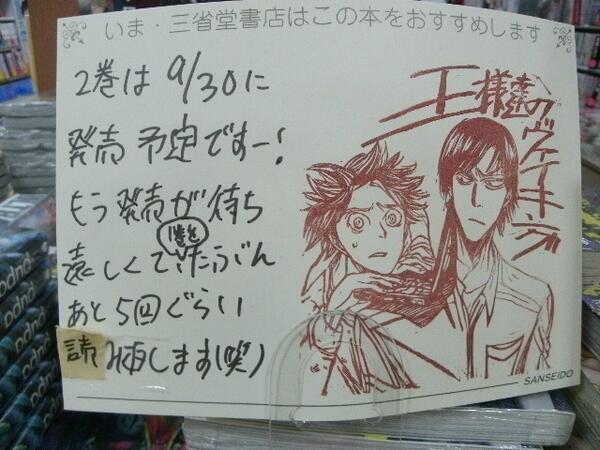 いま・三省堂書店はこの本をおすすめします
2巻は 9/30に
発売 予定ですー!
もう 発売が待ち
遠しくて1巻をたぶん
あと5回ぐらい
読み直します(笑)
王様達のヴァイキング
SANSEIDO